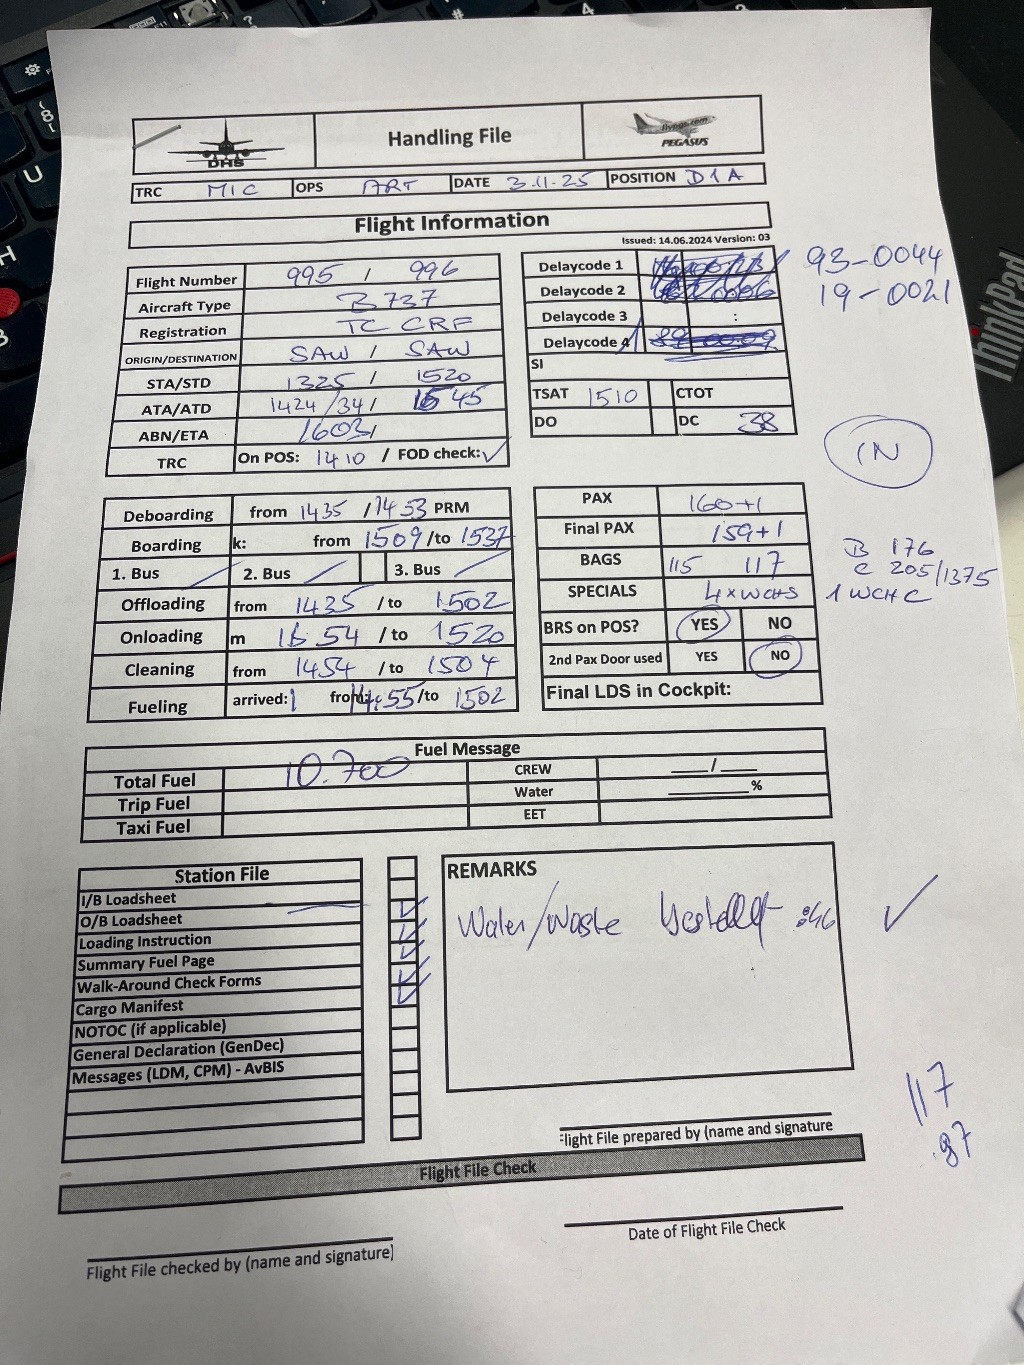 DHS
Handling File
flypgs.com
PEGASUS
TRC MIC OPS ART DATE 3.11.25 POSITION D1A
Flight Information
Issued: 14.06.2024 Version: 03
Flight Number 995 / 996
Aircraft Type B737
Registration TC CRF
ORIGIN/DESTINATION SAW / SAW
STA/STD 1325 / 1520
ATA/ATD 1424/34/ 1545
ABN/ETA 1603/
TRC On POS: 1410 / FOD check:✓
Delaycode 1
Delaycode 2
Delaycode 3 :
Delaycode 4
93-0044
19-0021
SI
TSAT 1510 CTOT
DO DC 38
IN
Deboarding from 1435 / 1453 PRM
Boarding k: from 1509 /to 1537
1. Bus 2. Bus 3. Bus
Offloading from 1435 /to 1502
Onloading m 54 /to 1520
Cleaning from 1454 /to 1504
Fueling arrived: from: 14:55 /to 1502
PAX 160+1
Final PAX 159+1
BAGS 115 117
SPECIALS 4xWCHS 1 WCHC
BRS on POS? YES NO
2nd Pax Door used YES NO
Final LDS in Cockpit:
B 176
C 205/1375
Fuel Message
Total Fuel 10.700 CREW ___/___
Trip Fuel Water ______%
Taxi Fuel EET
Station File
I/B Loadsheet
O/B Loadsheet ✓
Loading Instruction ✓
Summary Fuel Page ✓
Walk-Around Check Forms ✓
Cargo Manifest ✓
NOTOC (if applicable)
General Declaration (GenDec)
Messages (LDM, CPM) - AvBIS
REMARKS
Water/Waste bestellt :46 ✓
117
.97
Flight File prepared by (name and signature
Flight File Check
Flight File checked by (name and signature)
Date of Flight File Check
ThinkPad